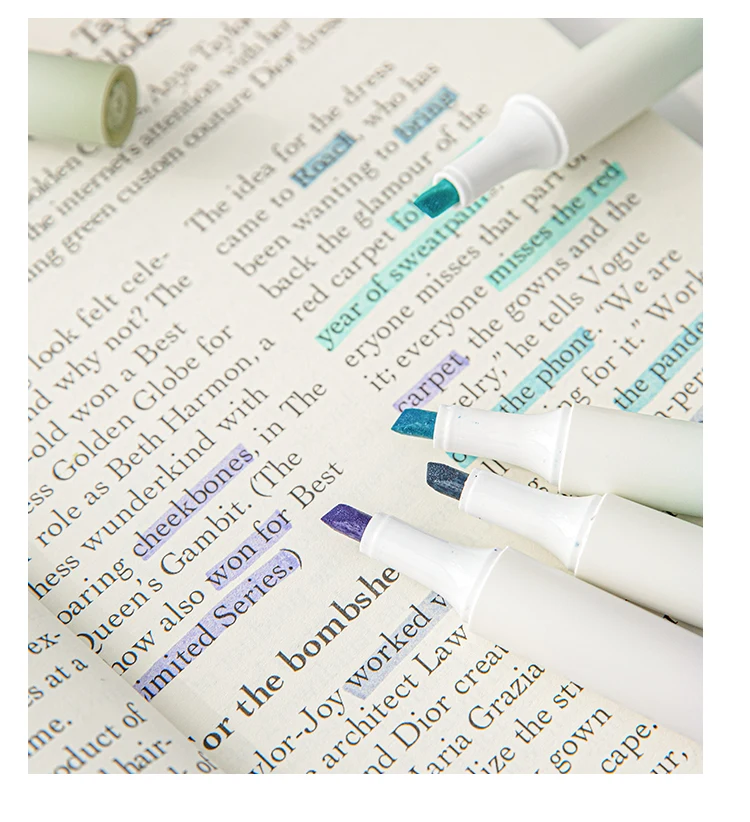 Anya Taylor
olden
the internet's attention with her
ing green custom couture Dior dress
look felt cele-
nd why not? The
-old won a Best
ess Golden Globe for
role as Beth Harmon, a
hess wunderkind with
paring cheekbones, in The
Queen's Gambit. (The
now also won for Best
imited Series.)
The idea for the dress
came to Roach, who has
been wanting to bring
back the glamour of the
red carpet fo
year of sweatpan
eryone misses that part of
it; everyone misses the red
carpet, the gowns and the
elry," he tells Vogue
the phone. "We are
ng for it." Work
the pande
n-per
or the bombshe
ylor-Joy worked w
architect Law
nd Dior creat
Maria Grazia
lize the sti
gown
cape.
ur,
ex-
s at a
me.
oduct of
hair-
of